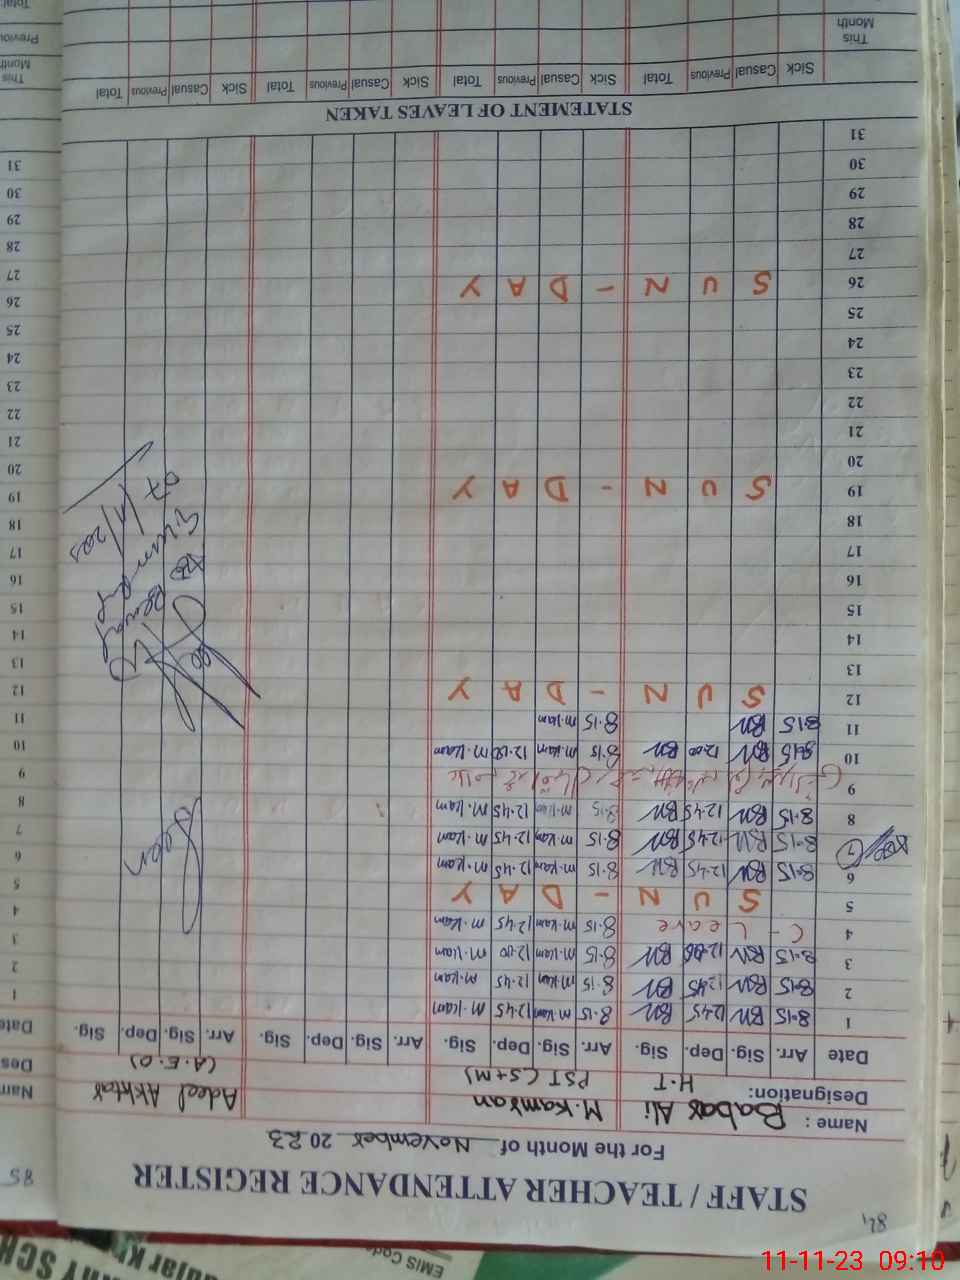 84
STAFF / TEACHER ATTENDANCE REGISTER
For the Month of November 2023
Name : Babar Ali M. Kamran Adeel Akhtar
Designation: H.T PST (S+M) (A.E.O)
Date Arr. Sig. Dep. Sig. Arr. Sig. Dep. Sig. Arr. Sig. Dep. Sig. Arr. Sig. Dep. Sig.
1 8-15 BN 12.45 BN 8-15 m.kam 12.45 M.kam
2 8-15 BN 12.45 BN 8-15 m.kam 12.45 m.kam
3 8-15 BN 12.00 BN 8-15 m.kam 12.00 m.kam
4 C - Leave 8-15 m.kam 12.45 m.kam
5 S U N - D A Y
6 8-15 BN 12.45 BN 8-15 m.kam 12.45 m.kam
7 8-15 BN 12.45 BN 8-15 m.kam 12.45 m.kam
8 8-15 BN 12.45 BN 8-15 m.kam 12.45 M.kam
Seen
9
10 8-15 BN 12.00 BN 8-15 m.kam 12.00 m.kam
11 8-15 BN 8-15 m.kam
12 S U N - D A Y
13
14
15
16
17
18
19 S U N - D A Y
20
21
22
23
24
25
26 S U N - D A Y
27
28
29
30
31
07/11/2023
STATEMENT OF LEAVES TAKEN
Sick Casual Previous Total Sick Casual Previous Total Sick Casual Previous Total Sick Casual Previous Total
This Month
85
Date
1
2
3
4
5
6
7
8
9
10
11
12
13
14
15
16
17
18
19
20
21
22
23
24
25
26
27
28
29
30
31
Total
This Month
Previous
Total
EMIS Code
11-11-23 09:10